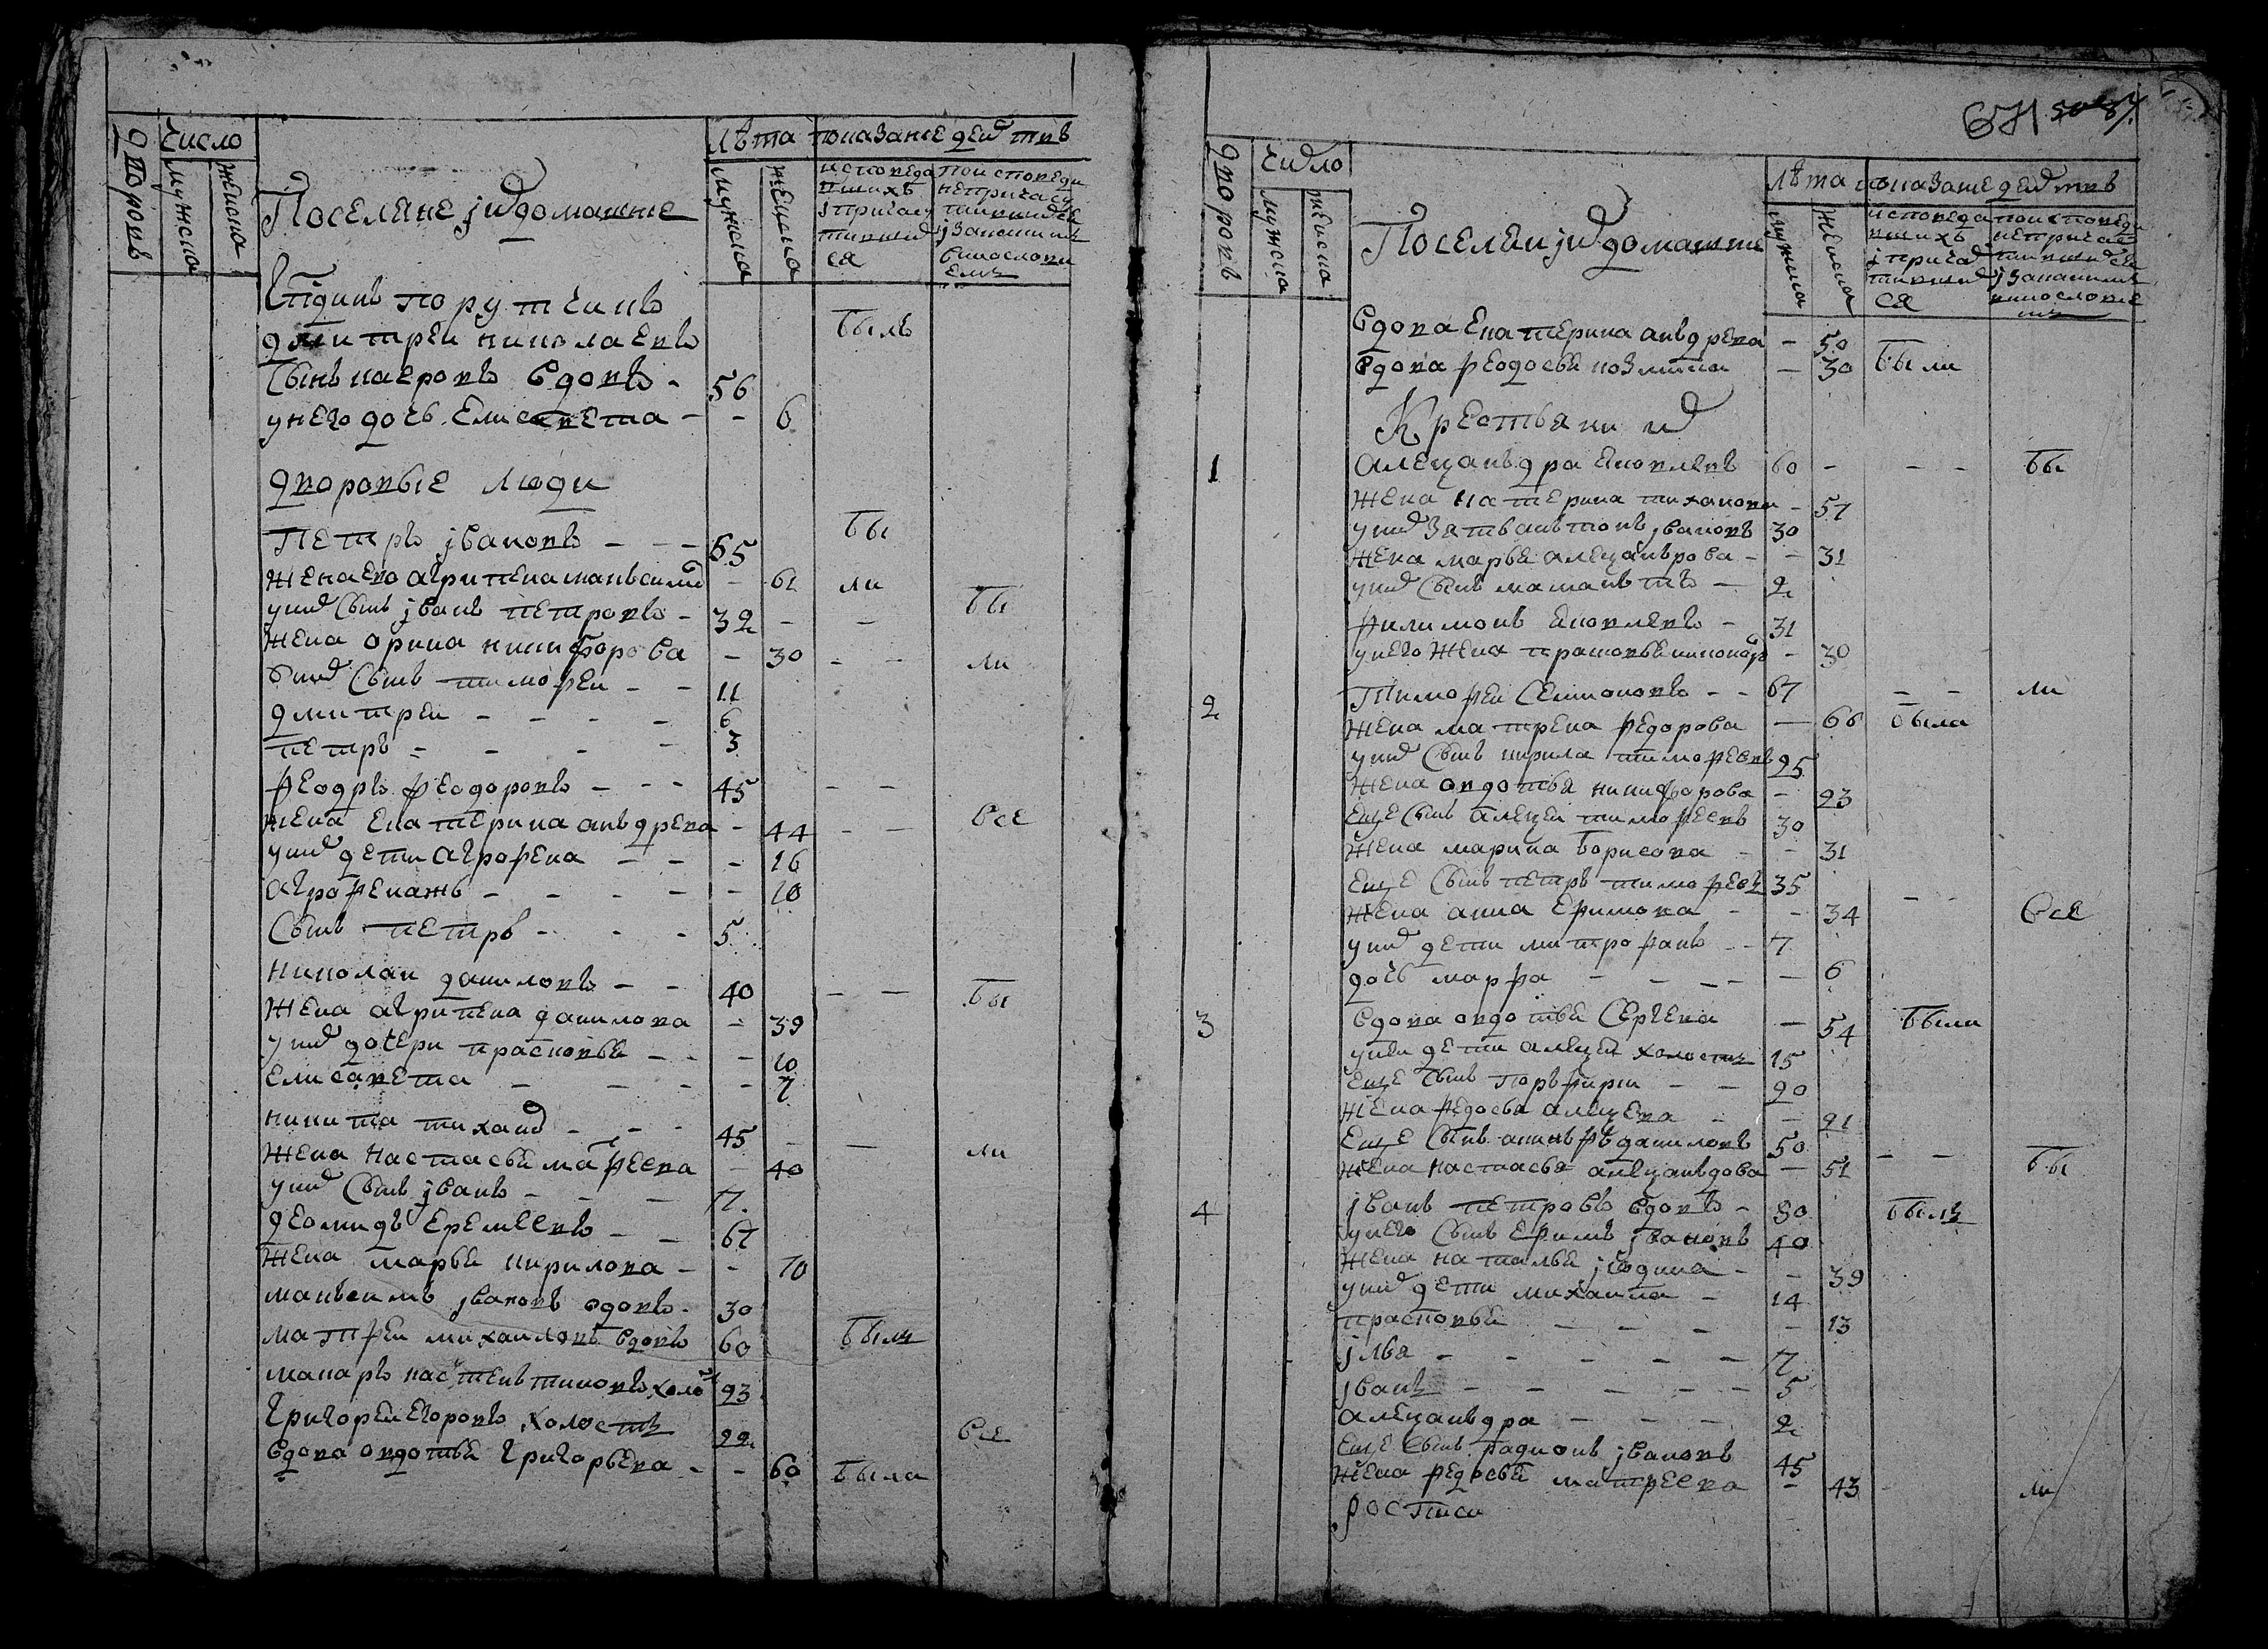 дворовъ
Число
мужска
женска
Поселяне ј их домашние
Лѣта
мужска
женска
показание действ
исповеда
вшихъ
ј причас
тивших
ся
по исповеди
непричас
тившихся
ј за каким
винослови
емъ
порутчикъ
дмитреи николаевъ
былъ
сынъ вдовъ - 56
у него дочь Елисавета - - 6
дворовые люди
Петръ јвановъ - - - 65 бы
жена ево агрипена маѯим - 61 ли
у них сынъ јванъ петровъ - 32 - - бы
жена орина никифорова - 30 - - ли
у них сынъ тимофеи - - 11
дмитреи - - - - 6
петръ - - - - 3
феодръ феодоровъ - - - 45 - -
жена екатерина андрева - 44 - - все
у них дети аграфена - - - 16
аграфена жъ - - - - - 10
сынъ петръ - - - 5
николаи даниловъ - - 40 - - бы
жена агрипена данилова - 39
у них дочери прасковья - - - 10
елисавета - - - - 7
никита тиханов - - - 45 - - ли
жена настасья матфеева - 40
у них сынъ јванъ - - - 7
деомидъ еремеевъ - - 67
жена марья кирилова - - 70
јвановъ вдовъ - 30
матфеи михаиловъ вдовъ 60 былъ
макаръ холос 23
григореи егоровъ холостъ 22 все
вдова авдотья григорьева - - 60 была
дворовъ
Число
мужска
женска
Поселян ј их домашние
Лѣта
мужска
женска
показание действ
исповеда
вшихъ
ј причас
тивших
ся
по исповеди
непричас
тившихся
ј за каким
винословие
мъ
вдова екатерина андрева - 50
вдова феодосья козмина - 30 были
Крестьяни их
1 яковлевъ 60 - - - бы
жена катерина тиханова - 57
у них зять јвановъ 30
жена марья - - 31
у них сынъ - 2
филимонъ яковлевъ - 31
у него жена прасковья - 30
2 Тимофеи семионовъ - - 67 - - ли
жена матрена федорова - 66 была
у них сынъ кирила тимофеевъ 25
жена авдотья никифорова - 23
еще сынъ алеѯеи тимофеевъ 30
жена марина борисова - - 31
еще сынъ петръ тимофеевъ 35 - -
жена анна ефимова - - 34 все
у них дети митрофанъ - - 7
дочь марфа - - - - - 6
3 вдова авдотья сергева - 54 были
у неи дети алеѯеи холостъ 15
еще сынъ порфири - - 20
жена федосья алеѯева - - 21
еще сынъ даниловъ 50 - -
жена настасья - 51 бы
4 јванъ петровъ вдовъ - 80 былъ
у него сынъ ефимъ јвановъ 40
жена наталья - - 39
у них дети михаила - 14
прасковья - - - - 13
јлья - - - - - 7
јванъ - - - - - 5
- - - 2
еще сынъ радионъ јвановъ 45
жена федосья матфеева - 43 ли
росписи